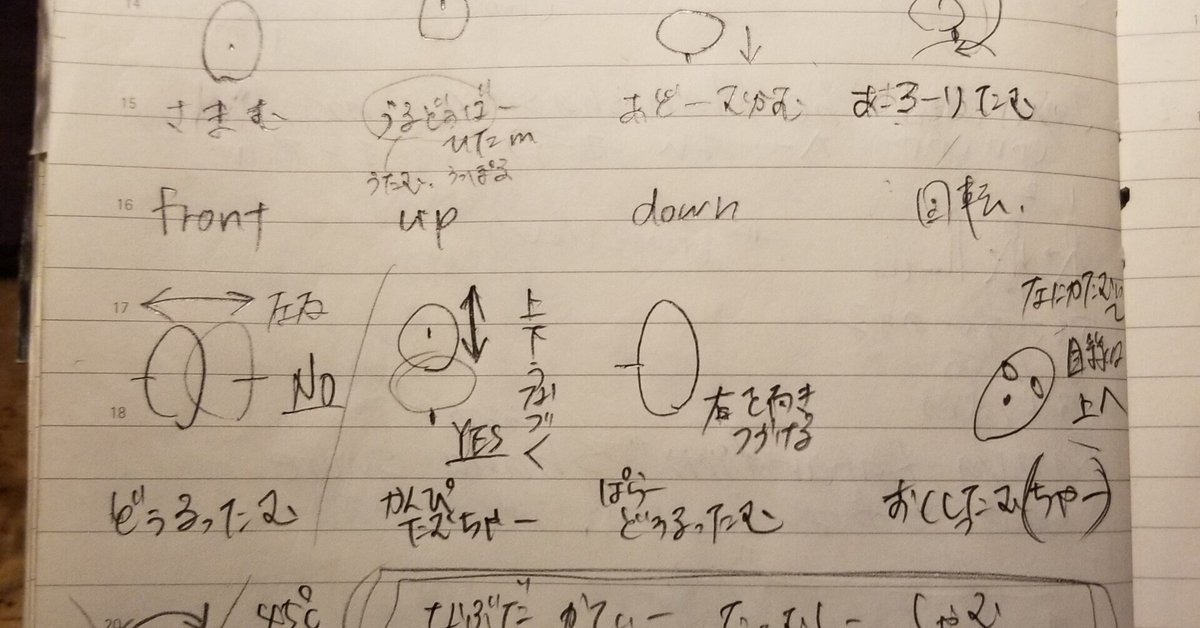 14
15 さまむ うるどぅばー あどーむかむ あころーりたむ
ひたm
うたむ、うっぱる
16 front up down 回転.
17 左右 上下うなづく なにかたむいて
目線は
上へ
NO 右を向き
つづける
18 YES
どぅるったむ かんぴ ぱらー おくりたむ(ちゃー)
たむちゃー どぅるったむ
20 45°C